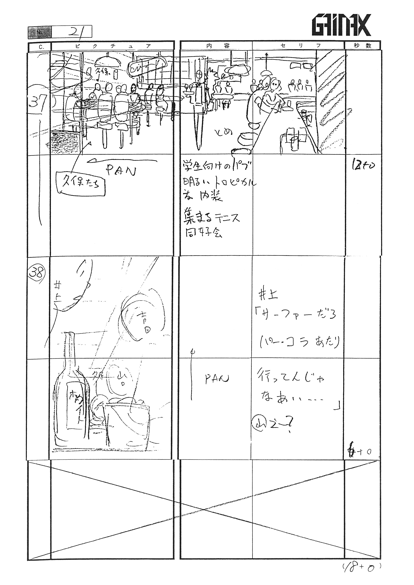 21
GAINAX
C.
ピクチュア
内容
セリフ
秒数
37
とめ
PAN
久保たち
学生向けのパブ
明るいトロピカル
な内装
集まるテニス
同好会
12+0
38
井上
吉田
井上
「サーファーだろ
パー・コラあたり
PAN
行ってんじゃ
なあい…」
6+0
(18+0)